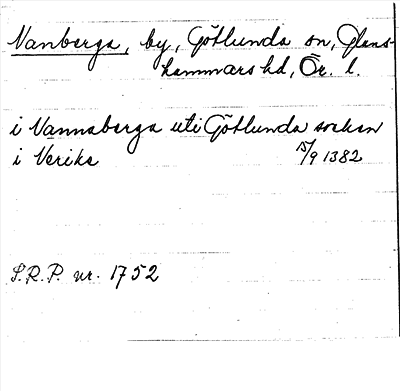 Vanberga, by, Götlunda sn, Glans-
hammars hd, Ör. l.
i Vannaberga uti Götlunda sokn
i Nerike 15/9 1382
S.R.P. nr. 1752